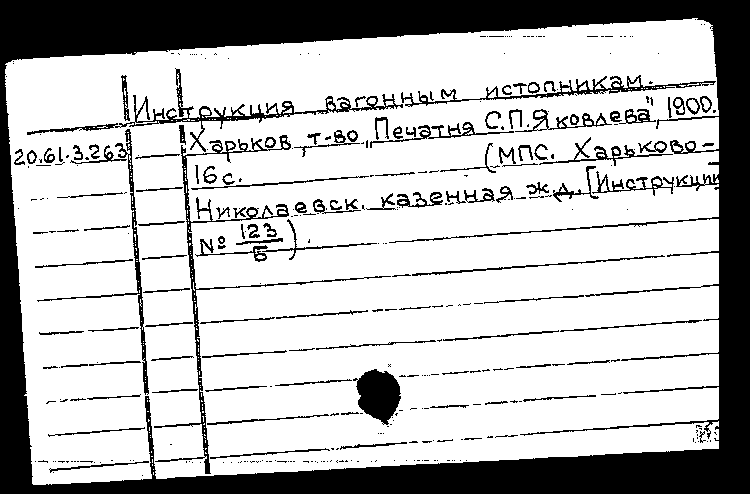 Инструкция вагонным истопникам.
20.61.3.263 Харьков, т-во „Печатня С.П.Яковлева", 1900.
16с. (МПС. Харьково-
Николаевск. казенная ж.д. [Инструкции
№ 123/Б).